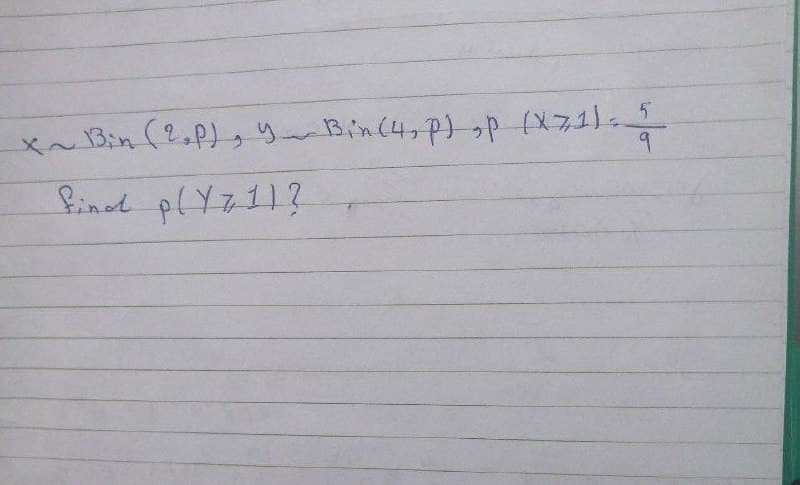 x ~ Bin (2,P), y ~ Bin(4, P), P (X ⩾ 1) = 5/9
find p(Y ⩾ 1)?